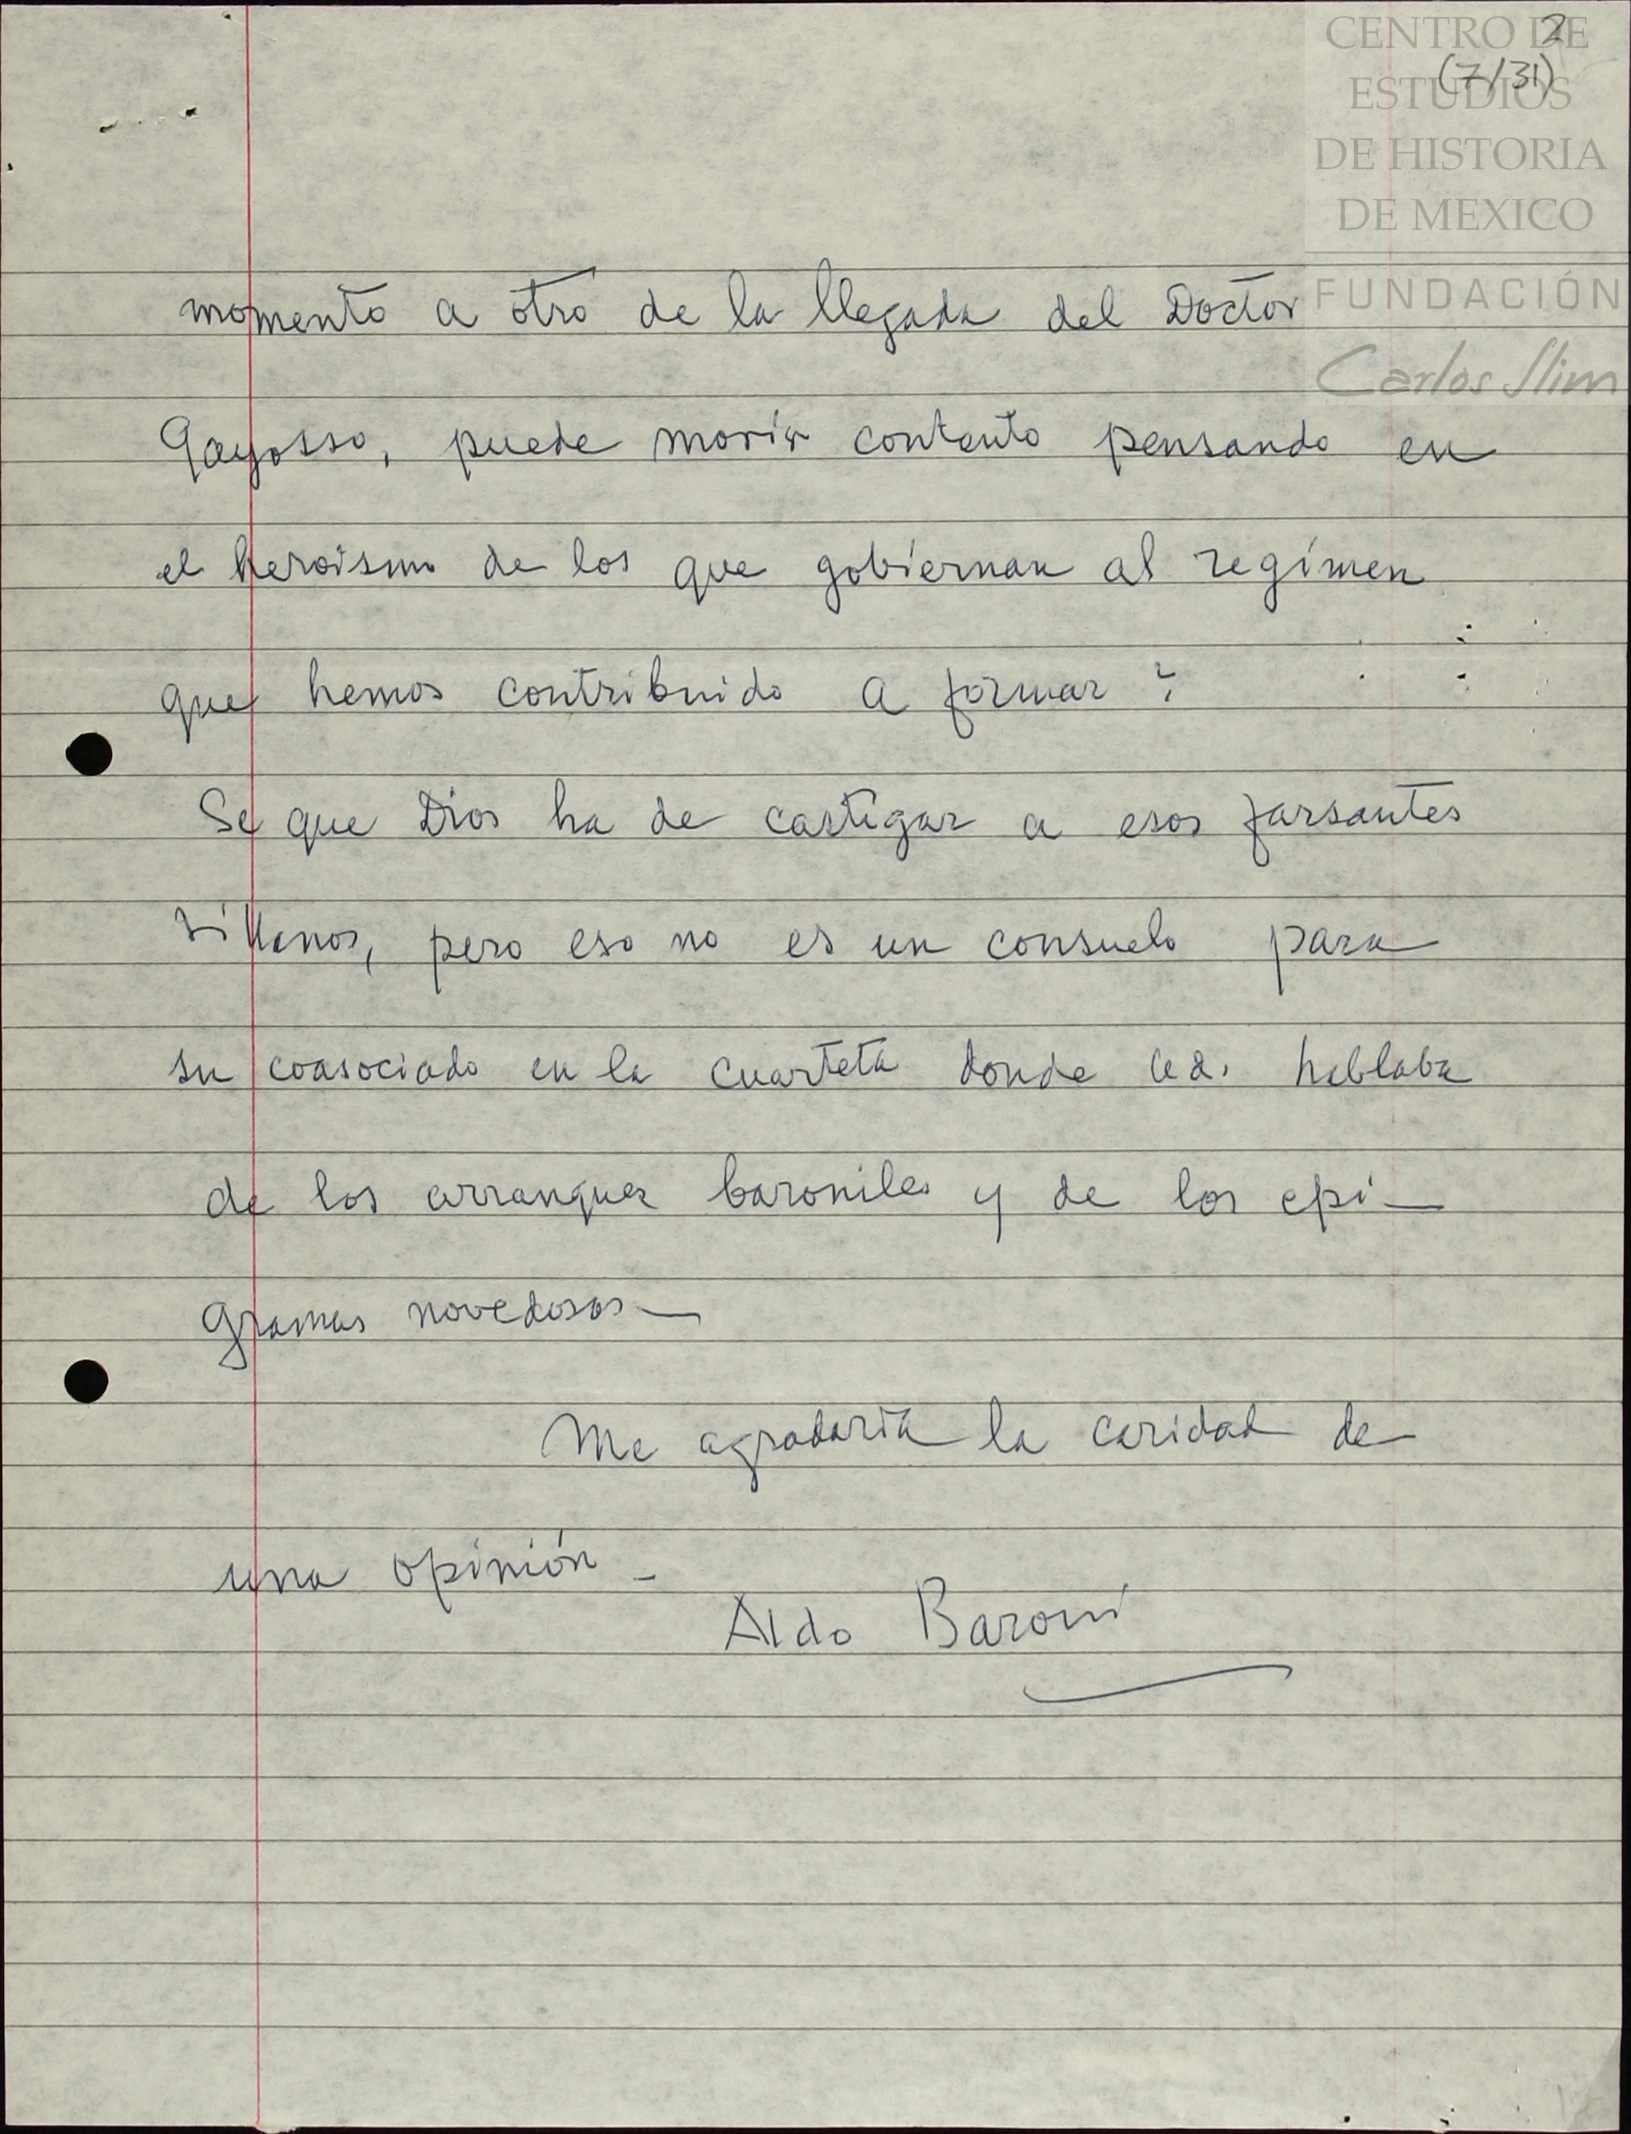 2
(7/31)
CENTRO DE
ESTUDIOS
DE HISTORIA
DE MEXICO
FUNDACIÓN
Carlos Slim
momento a otro de la llegada del Doctor
Gayosso, puede morir contento pensando en
el heroismo de los que gobiernan al regimen
que hemos contribuido a formar?
Se que Dios ha de castigar a esos farsantes
villanos, pero eso no es un consuelo para
su coasociado en la cuarteta donde Ud. hablaba
de los arranques baroniles y de los epi-
gramas novedosos—
Me agradaría la caridad de
una opinión -
Aldo Baroni